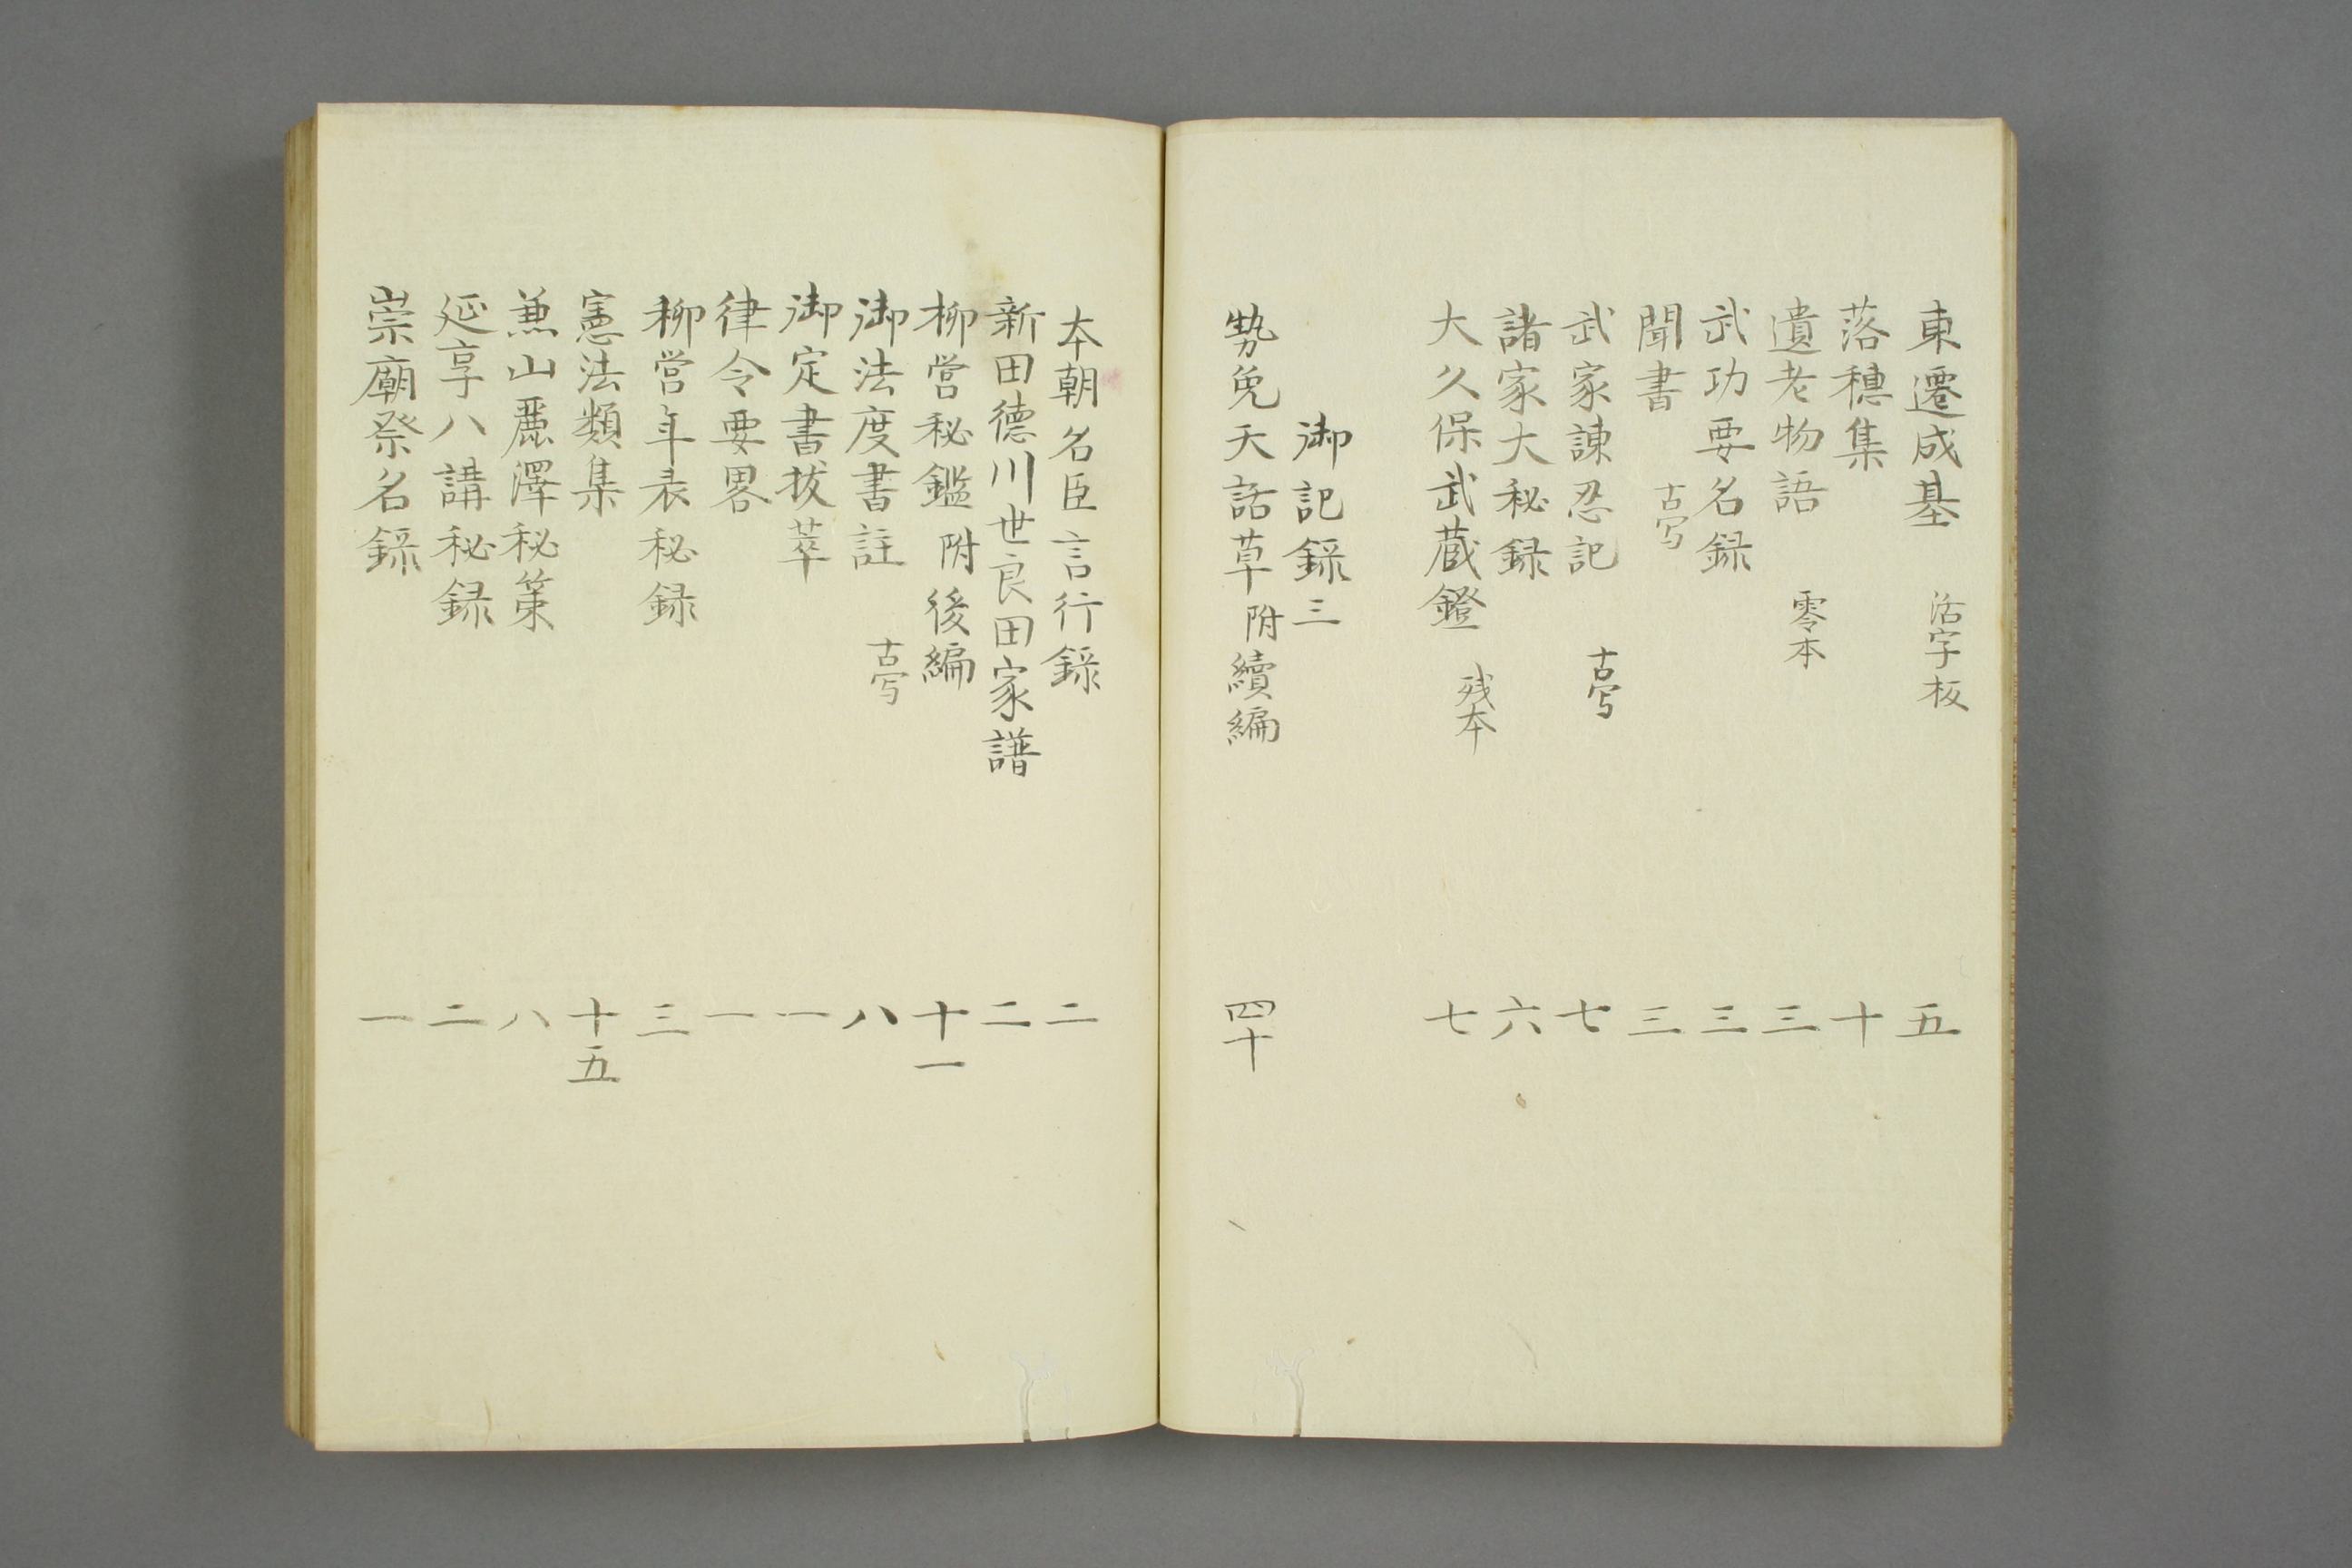 東遷成基 活字板 五
落穗集 十
遺老物語 零本 三
武功要名録 三
聞書 古写 三
武家諫忍記 古写 七
諸家大秘録 六
大久保武蔵鐙 残本 七
御記録三
㔟免夭話草附續編 四十
本朝名臣言行録 二
新田德川世良田家譜 二
柳営秘鑑附後編 十一
御法度書註 古写 八
御定書抜萃 一
律令要畧 一
柳営年表秘録 三
憲法類集 十五
兼山麗澤秘策 八
延享八講秘録 二
崇廟祭名録 一